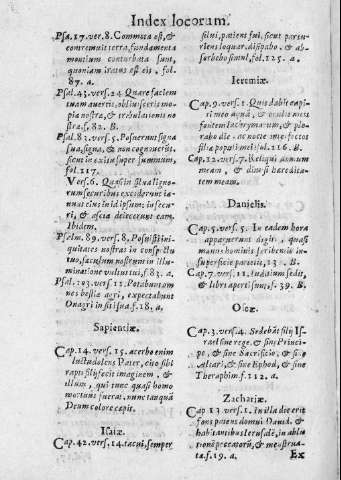 Index locorum.
Psa.17.ver.8. Commota est, &
contremuit terra, fundamenta
montium conturbata sunt,
quoniam iratus est eis, fol.
87. a.
Psal.43.vers.24. Quare faciem
tuam avertis, obliuisceris ino-
pia nostra, & tribulationis no-
stra, f.82. B.
Psal.82.vers.5. Posuerunt signa
sua, signa, & non cognuerũt,
sicut in exitu super summum,
fol.117.
Vers.6. Quasi in silua ligno-
rum securibus exciderunt ia-
nuas eius in id ipsum; in secu-
ri, & ascia deiecerunt eam.
Ibidem.
Psalm.89.vers.8. Posuisti ini-
quitates nostras in conspectu
tuo, sæculum nostrum in illu-
minatione vultus tui, f.83. a.
Psal.103.vers.11. Potabunt om
nes bestiæ agri, expectabunt
Onagri in siti sua. f.18. a.
Sapienciæ.
Cap.14. vers.15. acerbo enim
luctu dolens Pater, cito sibi
rapti filij fecit imaginem, &
illum, qui tunc quasi homo
mortuus fuerat, nunc tanquã
Deum colere cœpit.
Isaiæ.
Cap.42.vers.14. tacui, semper
silui, patiens fui, sicut partu-
riens loquar, dissipabo, & ab-
sorbebo simul, fol.125. a.
Ieremiæ.
Cap.9. vers.1. Quis dabit capi-
ti meo aquã, & oculis meis
fontem lacrymarum, & plo-
rabo die, ac nocte interfectos
filiæ populi mei? fol.216. B.
Cap.12.vers.7. Reliqui domum
meam, & dimisi hæredita-
tem meam.
Danielis.
Cap.5.vers.5. In eadem hora
apparuerunt digiti, quasi
manus hominis scribentis in
superficie parietis, B.
Cap.7. vers.11. Iuditium sedit,
& libri aperti sunt, f.39. B.
Oseæ.
Cap.3. vers.4. Sedebũt filij Is-
rael sine rege, & sine Princi-
pe, & sine Sacrificio, & sine
Altari, & sine Ephod, & sine
Theraphim. f.112. a.
Zachariæ.
Cap 13. vers.1. In illa die erit
fons patens domui David, &
habitantibus Ierusalẽ, in ablu
tionẽ peccatorũ, & menstrua-
ta. f.19. a.
Ex